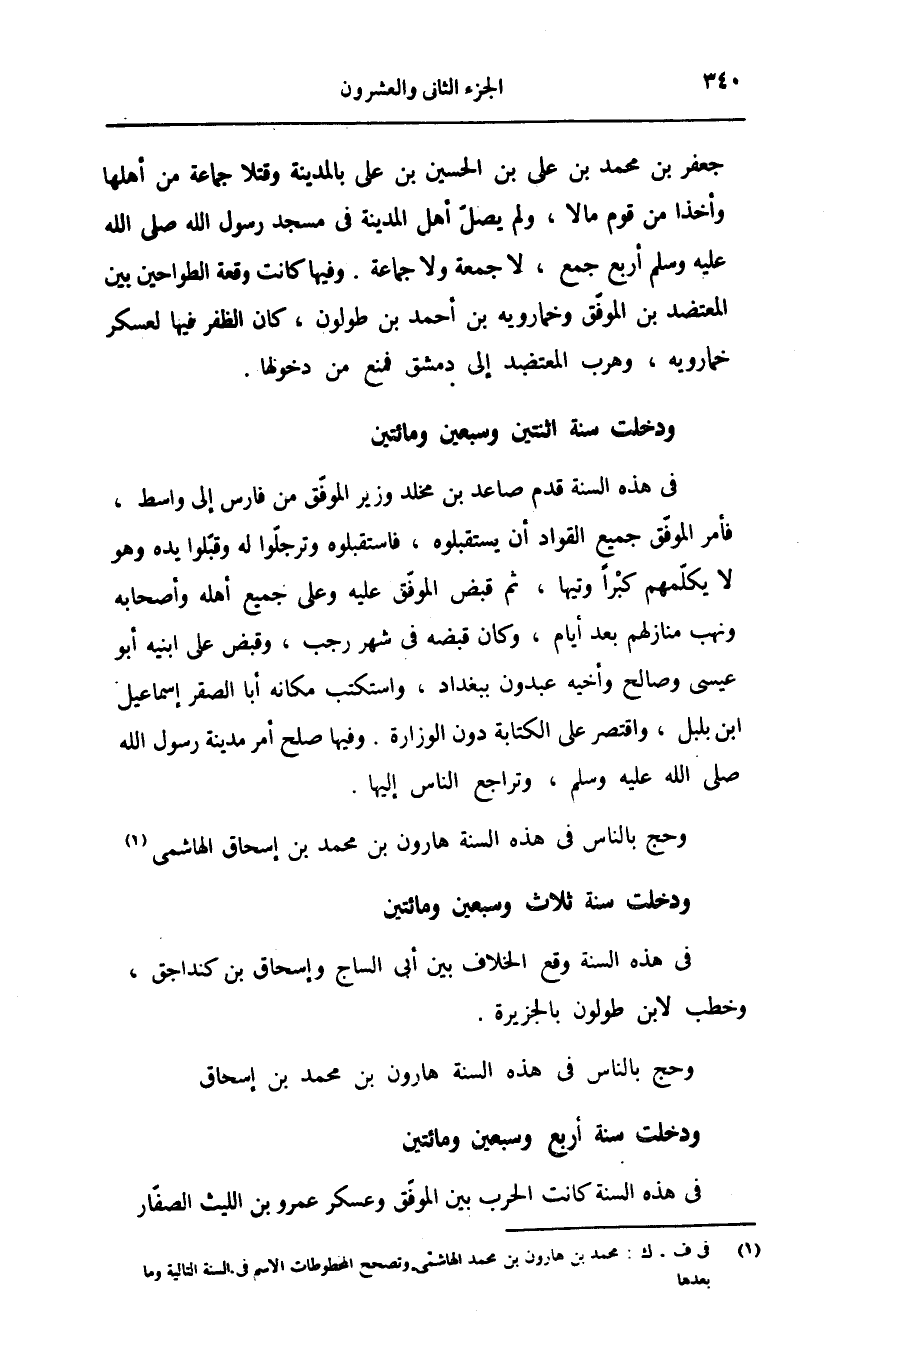 ٣٤٠
الجزء الثانى والعشرون
جعفر بن محمد بن على بن الحسين بن على بالمدينة وقتلا جماعة من أهلها
وأخذا من قوم مالا ، ولم يصلّ أهل المدينة فى مسجد رسول الله صلى الله
عليه وسلم أربع جمع ، لا جمعة ولا جماعة . وفيها كانت وقعة الطواحين بين
المعتضد بن الموفّق وخمارويه بن أحمد بن طولون ، كان الظفر فيها لعسكر
خمارويه ، وهرب المعتضد إلى دمشق فمنع من دخولها .
ودخلت سنة اثنتين وسبعين ومائتين
فى هذه السنة قدم صاعد بن مخلد وزير الموفّق من فارس إلى واسط ،
فأمر الموفّق جميع القواد أن يستقبلوه ، فاستقبلوه وترجلّوا له وقبّلوا يده وهو
لا يكلّمهم كبْراً وتيها ، ثم قبض الموفّق عليه وعلى جميع أهله وأصحابه
ونهب منازلهم بعد أيام ، وكان قبضه فى شهر رجب ، وقبض على ابنيه أبو
عيسى وصالح وأخيه عبدون ببغداد ، واستكتب مكانه أبا الصقر إسماعيل
ابن بلبل ، واقتصر على الكتابة دون الوزارة . وفيها صلح أمر مدينة رسول الله
صلى الله عليه وسلم ، وتراجع الناس إليها .
وحج بالناس فى هذه السنة هارون بن محمد بن إسحاق الهاشمى (١)
ودخلت سنة ثلاث وسبعين ومائتين
فى هذه السنة وقع الخلاف بين أبى الساج وإسحاق بن كنداجق ،
وخطب لابن طولون بالجزيرة .
وحج بالناس فى هذه السنة هارون بن محمد بن إسحاق
ودخلت سنة أربع وسبعين ومائتين
فى هذه السنة كانت الحرب بين الموفّق وعسكر عمرو بن الليث الصفّار
(١) فى ف . ك : محمد بن هارون بن محمد الهاشمى وتصحح المخطوطات الاسم فى السنة التالية وما
بعدها